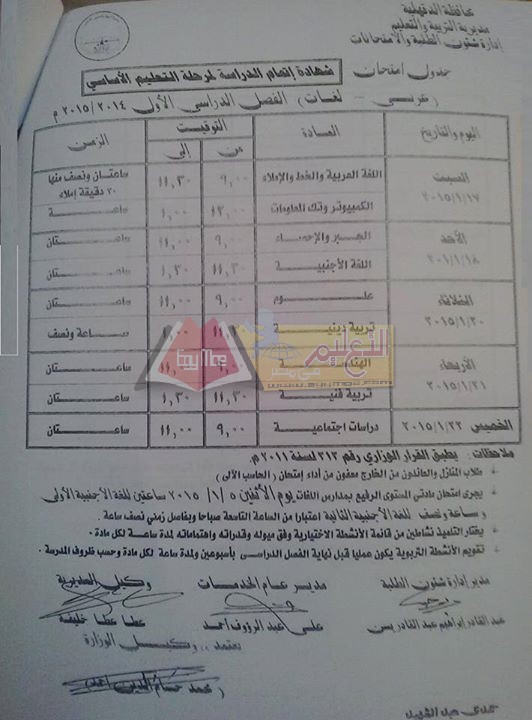 محافظة الدقهلية
مديرية التربية والتعليم
إدارة شئون الطلبة والامتحانات
جدول امتحان شهادة إتمام الدراسة لمرحلة التعليم الأساسي
( عربى - لغات ) الفصل الدراسى الأول ٢٠١٥/٢٠١٤ م
اليوم والتاريخ المادة التوقيت الزمن
من إلى
السبت ٢٠١٥/١/١٧ اللغة العربية والخط والإملاء ٩,٠٠ ١١,٣٠ ساعتان ونصف منها ٣٠ دقيقة إملاء
الكمبيوتر وتك المعلومات ١٢,٠٠ ١,٠٠ ساعة
الأحد ١/١٨ الجبر والإحصاء ٩,٠٠ ١١,٠٠ ساعتان
اللغة الأجنبية ١١,٣٠ ١,٣٠ ساعتان
الثلاثاء ٢٠١٥/١/٢٠ علوم ٩,٠٠ ١١,٠٠ ساعتان
تربية دينية ساعة ونصف
الأربعاء ٢٠١٥/١/٢١ الهندسة ساعتان
تربية فنية ١١,٣٠ ١,٣٠ ساعتان
الخميس ٢٠١٥/١/٢٢ دراسات اجتماعية ٩,٠٠ ١١,٠٠ ساعتان
ملاحظات : يطبق القرار الوزاري رقم ٣١٣ لسنة ٢٠١١ م.
طلاب المنازل والعائدون من الخارج معفون من أداء إمتحان ( الحاسب الألى )
يجرى امتحان مادتى المستوى الرفيع بمدارس اللغات يوم الأثنين ٢٠١٥/١/٥ ساعتين للغة الأجنبية الأولى
وساعة ونصف للغة الأجنبية الثانية اعتبارا من الساعة التاسعة صباحا وبفاصل زمني نصف ساعة .
يختار التلميذ نشاطين من قائمة الأنشطة الاختيارية وفق ميوله وقدراته واهتماماته لمدة ساعة لكل مادة .
تقويم الأنشطة التربوية يكون عمليا قبل نهاية الفصل الدراسى بأسبوعين ولمدة ساعة لكل مادة وحسب ظروف المدرسة .
مدير إدارة شئون الطلبة مدير عام الخدمات وكيل المديرية
عبد القادر إبراهيم عبد القادر يس على عبد الرؤوف احمد عطا عطا خليفة
يعتمد ,, وكيل الوزارة
التعليم فى مصر